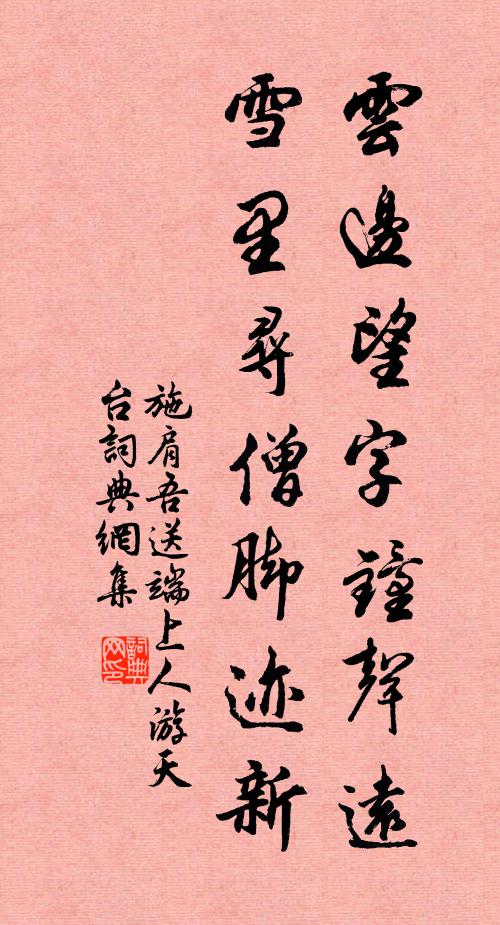 雲邊望字鐘聲遠
雪里尋僧脚迹新
施肩吾送端上人游天
台詞典網集
詞典
网印